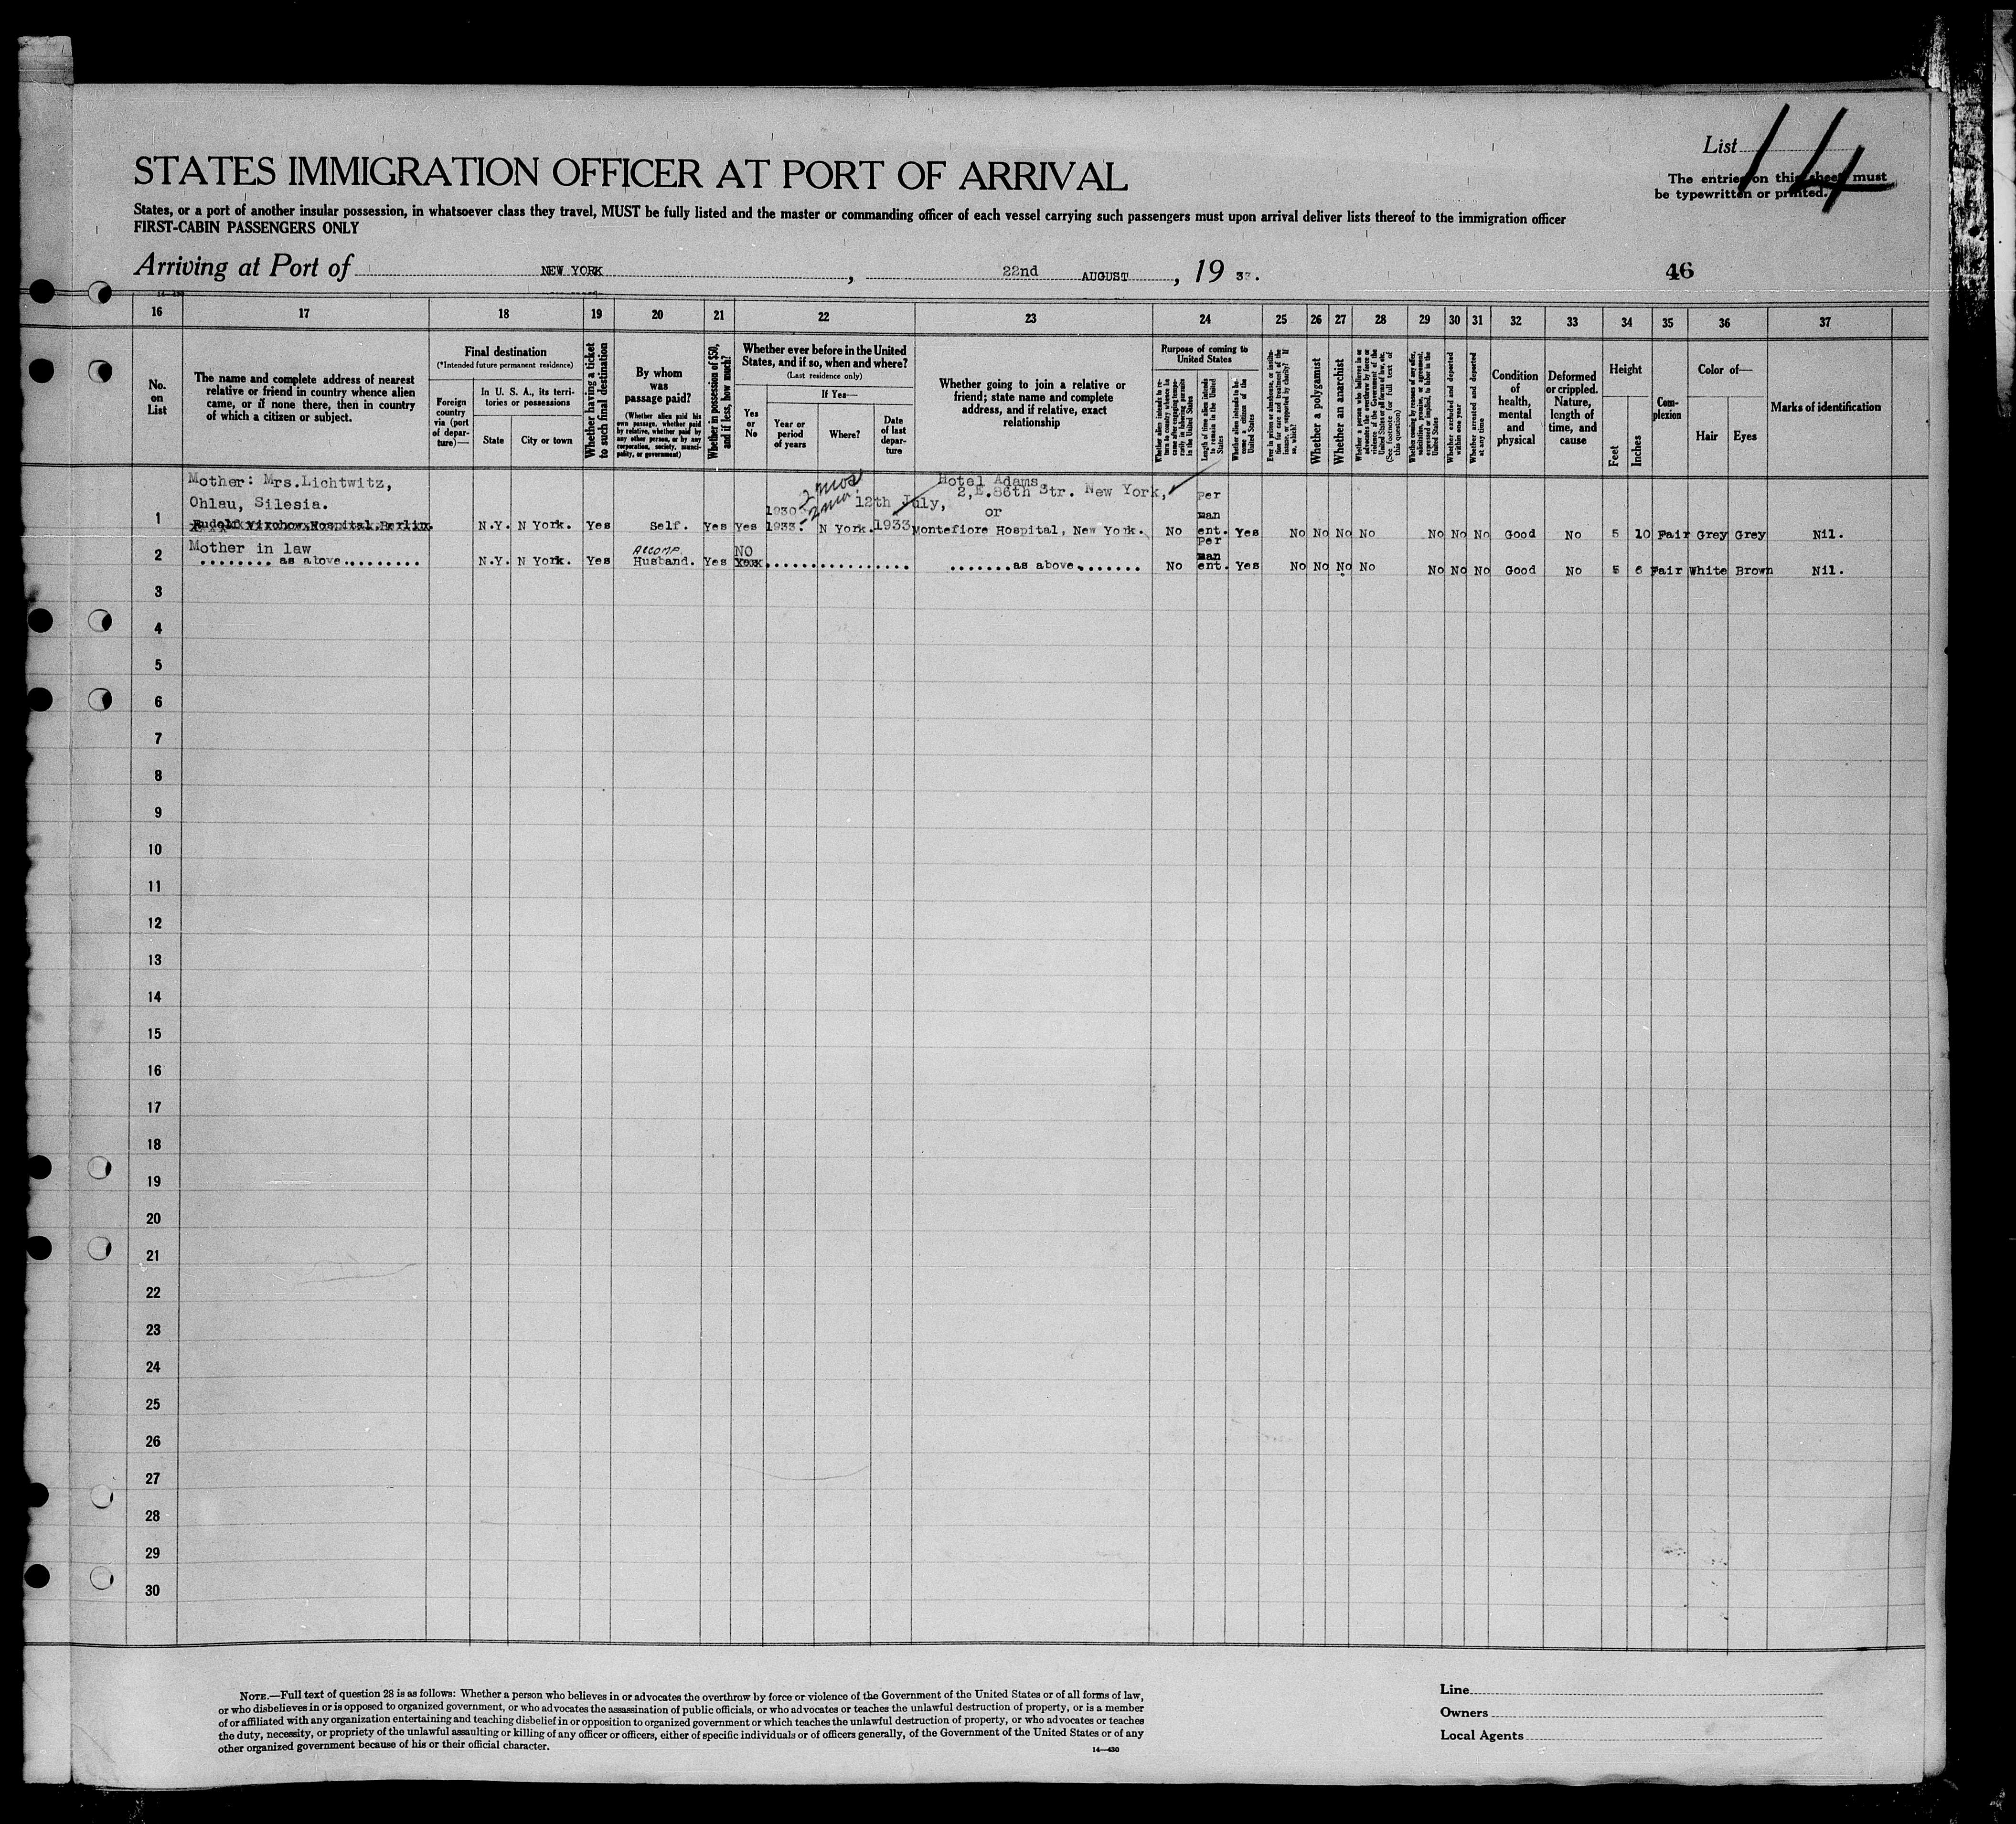 List 14
The entries on this sheet must
be typewritten or printed.
STATES IMMIGRATION OFFICER AT PORT OF ARRIVAL
States, or a port of another insular possession, in whatsoever class they travel, MUST be fully listed and the master or commanding officer of each vessel carrying such passengers must upon arrival deliver lists thereof to the immigration officer
FIRST-CABIN PASSENGERS ONLY
Arriving at Port of NEW YORK, 22nd AUGUST, 19 33.
46
16 17 18 19 20 21 22 23 24 25 26 27 28 29 30 31 32 33 34 35 36 37
No.
on
List
The name and complete address of nearest
relative or friend in country whence alien
came, or if none there, then in country
of which a citizen or subject.
Final destination
(*Intended future permanent residence)
Foreign
country
via (port
of depar-
ture)—
In U. S. A., its terri-
tories or possessions
State City or town
Whether having a ticket
to such final destination
By whom
was
passage paid?
(Whether alien paid his
own passage, whether paid
by relative, whether paid by
any other person, or by any
corporation, society, munici-
pality, or government)
Whether in possession of $50,
and if less, how much?
Whether ever before in the United
States, and if so, when and where?
(Last residence only)
Yes
or
No
If Yes—
Year or
period
of years
Where?
Date
of last
depar-
ture
Whether going to join a relative or
friend; state name and complete
address, and if relative, exact
relationship
Purpose of coming to
United States
Whether alien intends to re-
turn to country whence he
came after engaging tempo-
rarily in laboring pursuits
in the United States
Length of time alien intends
to remain in the United
States
Whether alien intends to be-
come a citizen of the
United States
Ever in prison or almshouse, or institu-
tion for care and treatment of the
insane, or supported by charity? If
so, which?
Whether a polygamist
Whether an anarchist
Whether a person who believes in or
advocates the overthrow by force or
violence of the Government of the
United States or all forms of law, etc.
(See footnote for full text of
this question)
Whether coming by reason of any offer,
solicitation, promise, or agreement,
expressed or implied, to labor in the
United States
Whether excluded and deported
within one year
Whether arrested and deported
at any time
Condition
of
health,
mental
and
physical
Deformed
or crippled.
Nature,
length of
time, and
cause
Height
Feet
Inches
Com-
plexion
Color of—
Hair Eyes
Marks of identification
Mother: Mrs.Lichtwitz,
Ohlau, Silesia.
1 Rudolf Virchow Hospital, Berlin. N.Y. N York. Yes Self. Yes Yes 1930 1933. 2 mos 2 mos N York. 12th July, 1933 Hotel Adams, 2,E.86th Str. New York, or Montefiore Hospital, New York. No Per man ent. Yes No No No No No No No Good No 5 10 Fair Grey Grey Nil.
Mother in law
2 ........ as above......... N.Y. N York. Yes Accomp. Husband. Yes NO ................ .......as above....... No Per man ent. Yes No No No No No No No Good No 5 6 Fair White Brown Nil.
3
4
5
6
7
8
9
10
11
12
13
14
15
16
17
18
19
20
21
22
23
24
25
26
27
28
29
30
NOTE.—Full text of question 28 is as follows: Whether a person who believes in or advocates the overthrow by force or violence of the Government of the United States or of all forms of law,
or who disbelieves in or is opposed to organized government, or who advocates the assassination of public officials, or who advocates or teaches the unlawful destruction of property, or is a member
of or affiliated with any organization entertaining and teaching disbelief in or opposition to organized government or which teaches the unlawful destruction of property, or who advocates or teaches
the duty, necessity, or propriety of the unlawful assaulting or killing of any officer or officers, either of specific individuals or of officers generally, of the Government of the United States or of any
other organized government because of his or their official character.
14—430
Line
Owners
Local Agents